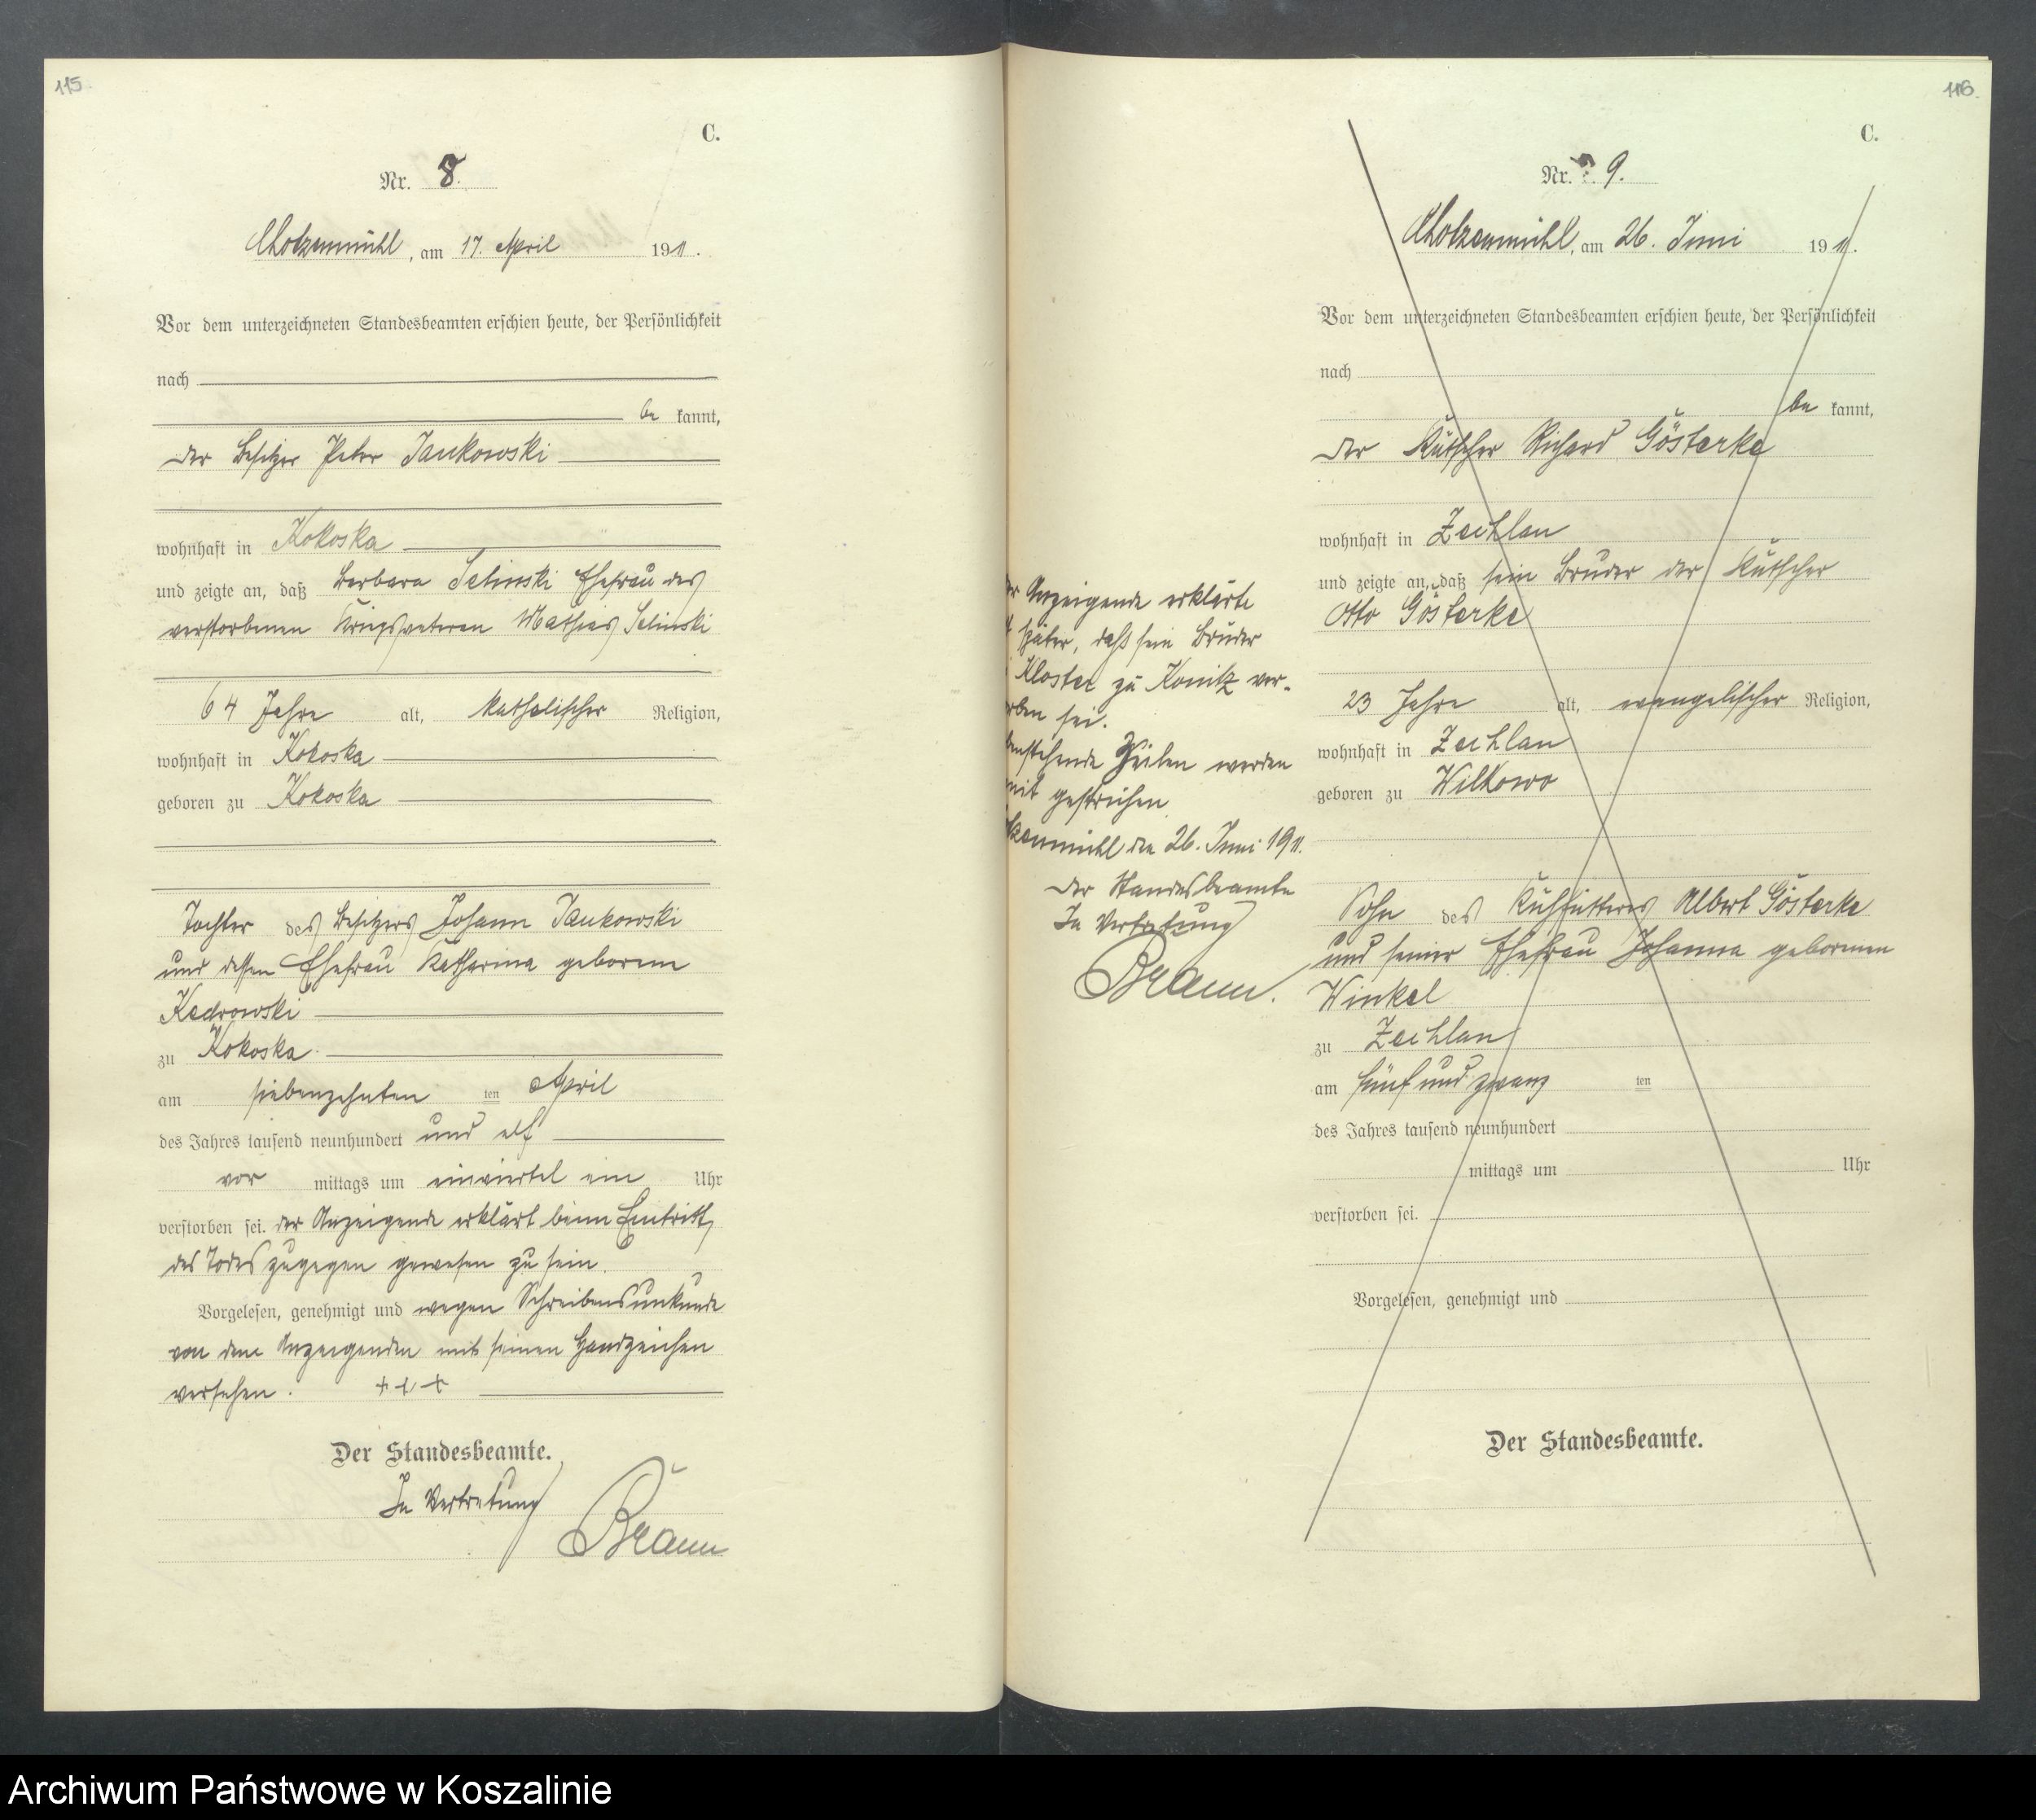 115.
C.
Nr. 8.
Chotzenmühl, am 17. April 1911.
Vor dem unterzeichneten Standesbeamten erschien heute, der Persönlichkeit
nach
be kannt,
der Besitzer Peter Jankowski
wohnhaft in Kokoska
und zeigte an, daß Barbara Selinski Ehefrau des
verstorbenen Kriegsveteran Mathias Selinski
64 Jahre alt, katholischer Religion,
wohnhaft in Kokoska
geboren zu Kokoska
Tochter des Besitzers Johann Jankowski
und dessen Ehefrau Katharina geborene
Kedrowski
zu Kokoska
am siebenzehnten ten April
des Jahres tausend neunhundert und elf
vor mittags um einviertel ein Uhr
verstorben sei. der Anzeigende erklärt beim Eintritt
des Todes zugegen gewesen zu sein.
Vorgelesen, genehmigt und wegen Schreibensunkunde
von dem Anzeigenden mit seinen Handzeichen
versehen. +++
Der Standesbeamte.
In Vertretung
Braun
116.
C.
Nr. 9.
Chotzenmühl, am 26. Juni 1911.
Vor dem unterzeichneten Standesbeamten erschien heute, der Persönlichkeit
nach
be kannt,
der Kutscher Richard Gösterke
wohnhaft in Zechlau
und zeigte an, daß sein Bruder der Kutscher
Otto Gösterke
23 Jahre alt, evangelischer Religion,
wohnhaft in Zechlau
geboren zu Wilkowo
Sohn des Kuhfütterers Albert Gösterke
und seiner Ehefrau Johanna geborenen
Winkel
zu Zechlau
am fünf und zwanz ten
des Jahres tausend neunhundert
mittags um Uhr
verstorben sei.
Vorgelesen, genehmigt und
Der Standesbeamte.
Anzeigende erklärte
später, daß sein Bruder
Kloster zu Konitz ver-
rben sei.
enstehende Zeilen werden
mit gestrichen.
tzenmühl den 26. Juni 1911.
Der Standesbeamte
In Vertretung
Braun.
Archiwum Państwowe w Koszalinie